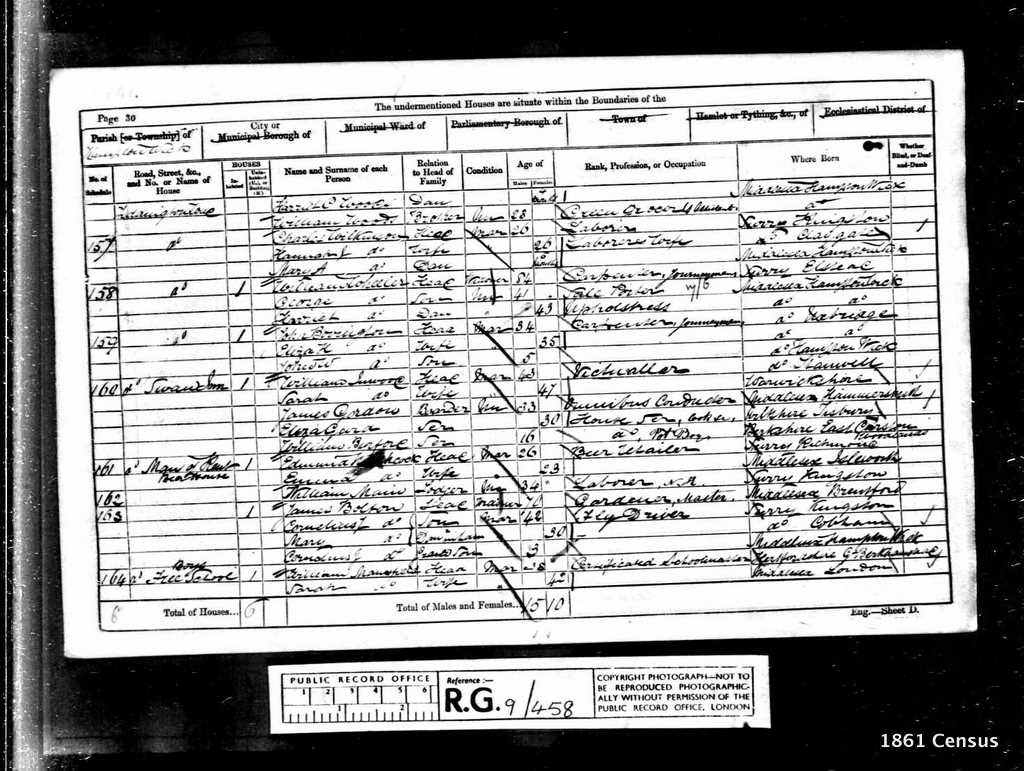 The undermentioned Houses are situate within the Boundaries of the
Page 30
Parish [or Township] of
City or Municipal Borough of
Municipal Ward of
Parliamentary Borough of
Town of
Hamlet or Tything, &c., of
Ecclesiastical District of
Hampton Wick
No. of Schedule
Road, Street, &c., and No. or Name of House
HOUSES
Inhabited
Uninhabited (U.), or Building (B.)
Name and Surname of each Person
Relation to Head of Family
Condition
Age of
Males
Females
Rank, Profession, or Occupation
Where Born
Whether Blind, or Deaf-and-Dumb
Harriet C Woods Dau Middlesex Hampton Wick
William Woods Brother Un 28 Green Grocers Assistant do
157 do Charles Wilkinson Head Mar 26 Laborer Surrey Kingston
Hannah J do Wife " 26 Laborers Wife do Claygate
Mary A do Dau Middlesex Hampton Wick
158 do 1 William Head Widower 84 Carpenter, Journeyman Surrey
George do Son Un 41 Porter Middlesex Hampton Wick
Harriet do Dau " 43 Upholstress do do
159 do 1 John Head Mar 34 Carpenter, Journeyman do Uxbridge
Eliza H do Wife " 35 do do
John W do Son 5 do Hampton Wick
160 do Swan Inn 1 William Head Mar 43 Victualler do Hanwell
Sarah do Wife " 47 Warwickshire
James Gordon Boarder Un 33 Omnibus Conductor Middlesex Hammersmith
Eliza Ser 30 House Ser Wiltshire
William Ser 16 do, Pot Boy Berkshire East
161 do Man of Kent Beer House 1 Edmund Head Mar 26 Beer Retailer Surrey Richmond
Emma do Wife " 23 Middlesex Isleworth
162 William Main Lodger Un 34 Laborer Surrey Kingston
163 1 James Bolton Head Widower 70 Gardener, Master. Middlesex Brentford
Cornelius J do Son Mar 42 Fly Driver Surrey Kingston
Mary do 30 do Cobham
Cornelius J do Grand Son 3 Middlesex Hampton Wick
164 do Boys Free School 1 William Head Mar 38 Certificated Schoolmaster Hertfordshire Gt Berkhamsted
Sarah do Wife " 42 Middlesex London
Total of Houses... 6
Total of Males and Females... 15 10
Eng.—Sheet D.
PUBLIC RECORD OFFICE
1 2 3 4 5 6
1 2
Reference :—
R.G. 9/458
COPYRIGHT PHOTOGRAPH—NOT TO
BE REPRODUCED PHOTOGRAPHIC-
ALLY WITHOUT PERMISSION OF THE
PUBLIC RECORD OFFICE, LONDON
1861 Census